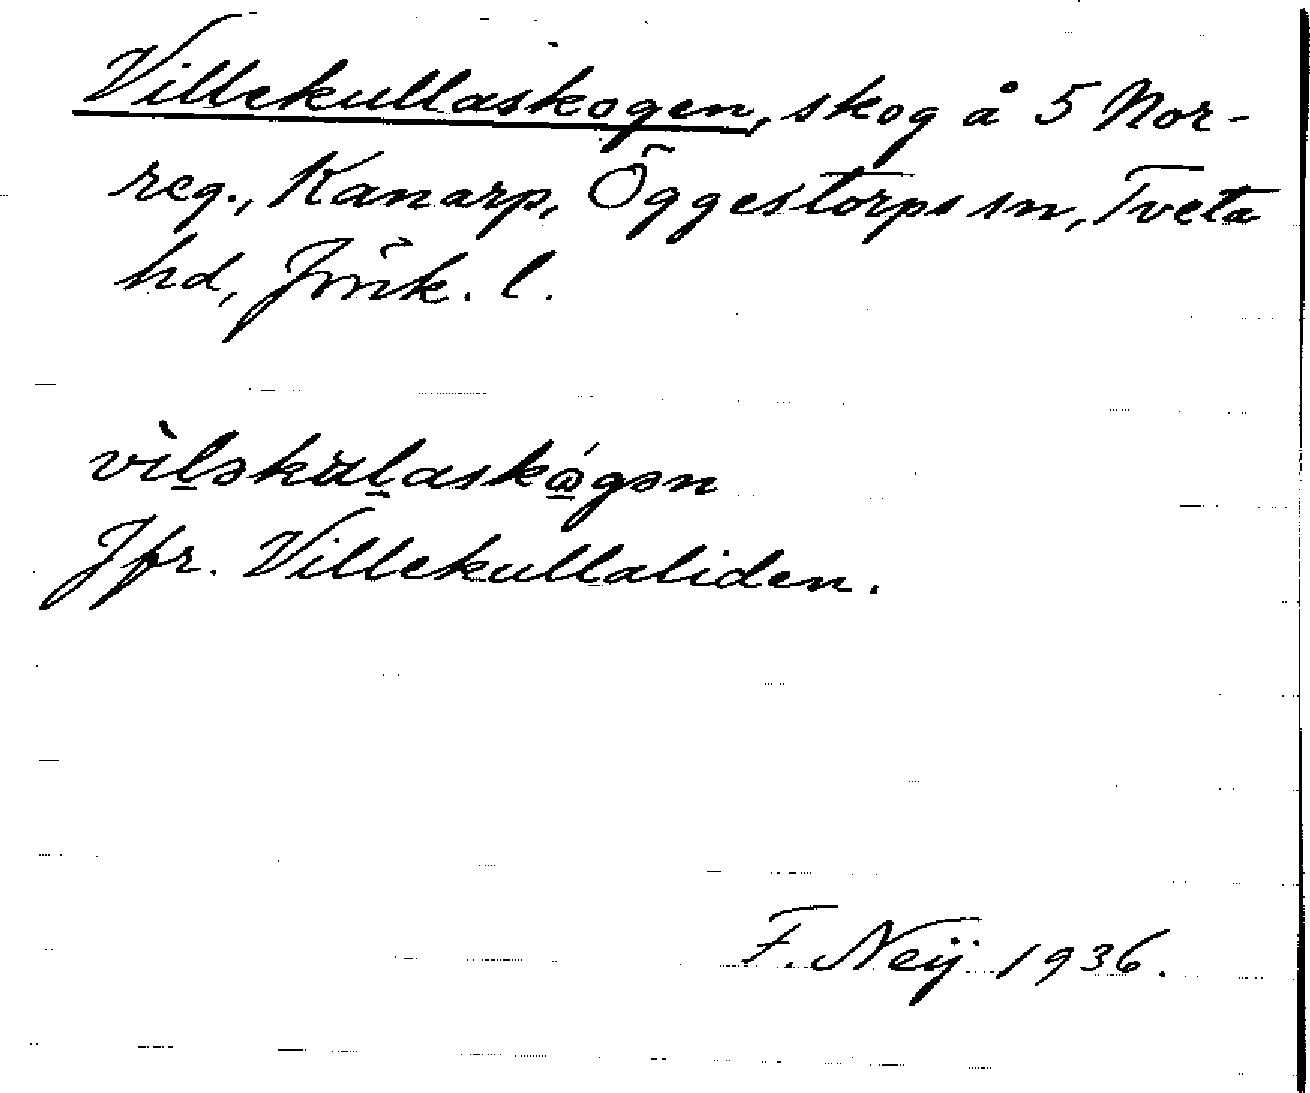 Villekullaskogen, skog å 5 Nor-
reg., Kanarp, Öggestorps sn, Tveta
hd, Jönk. l.
vìl̠əkul̠askǻ̠gən
Jfr. Villekullaliden.
F. Neij 1936.